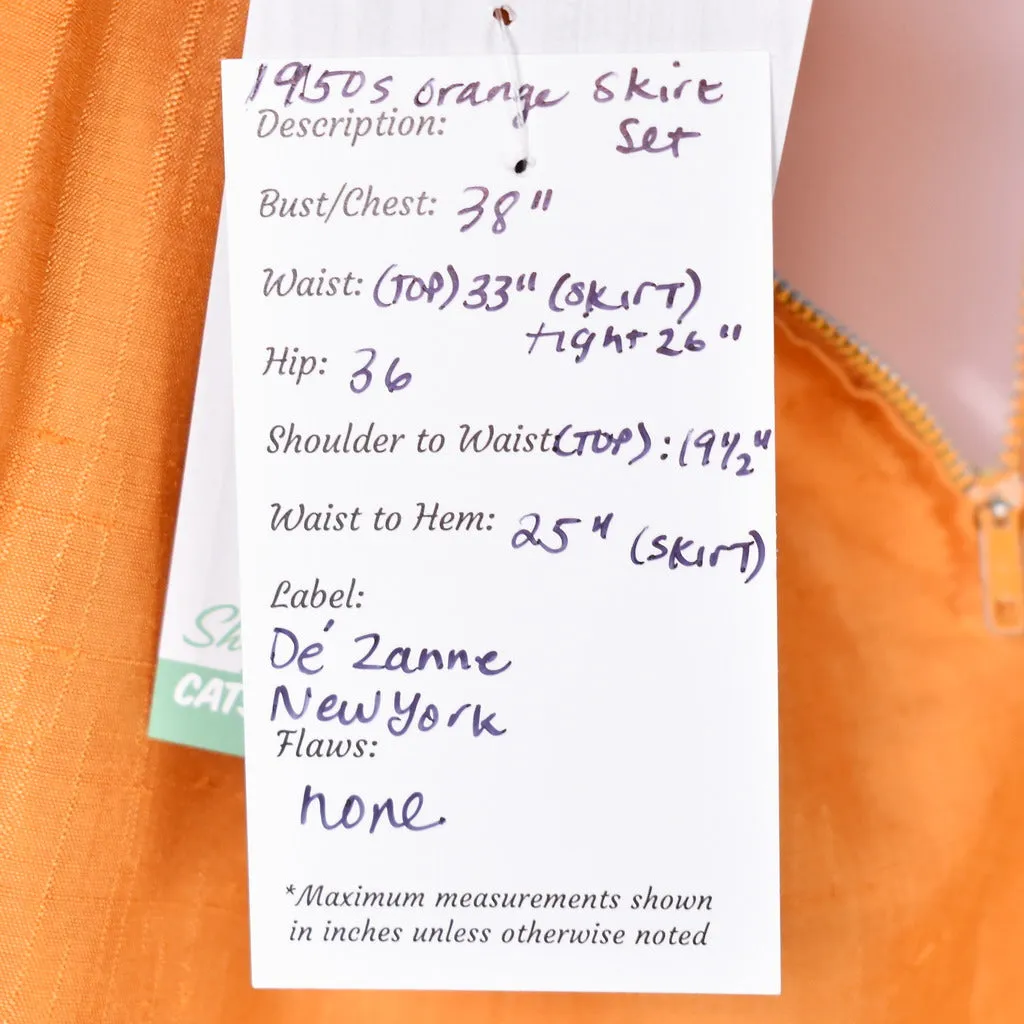 1950s orange skirt
Description: Set
Bust/Chest: 38"
Waist: (TOP) 33" (SKIRT)
tight 26"
Hip: 36
Shoulder to Waist (TOP): 19 1/2"
Waist to Hem: 25" (SKIRT)
Label:
Dé Zanne
New York
Flaws:
none
*Maximum measurements shown
in inches unless otherwise noted